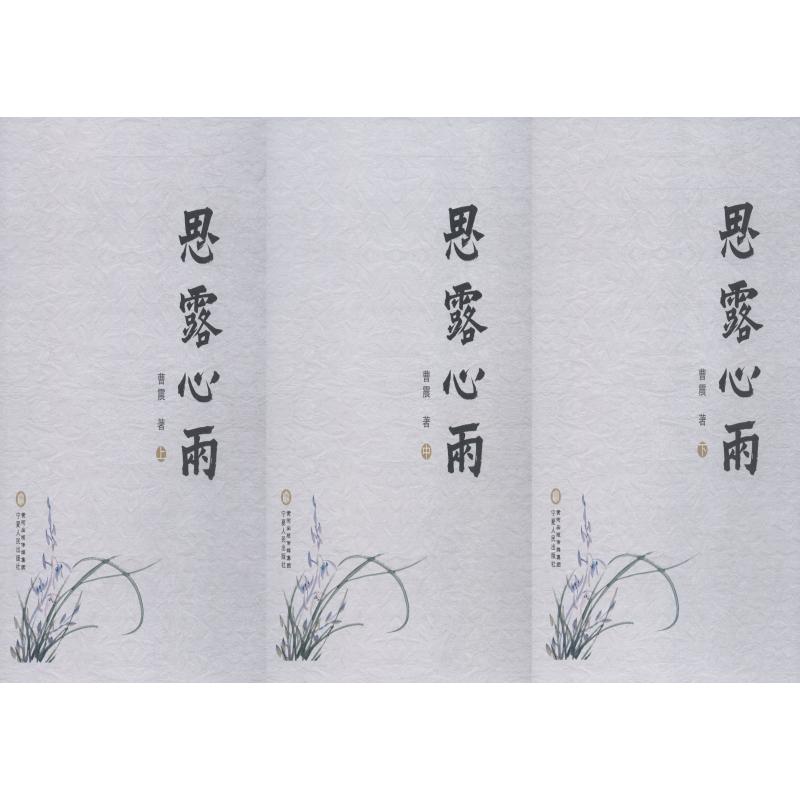 思露心雨
曹震 著
上
黄河出版传媒集团
宁夏人民出版社
思露心雨
曹震 著
中
黄河出版传媒集团
宁夏人民出版社
思露心雨
曹震 著
下
黄河出版传媒集团
宁夏人民出版社